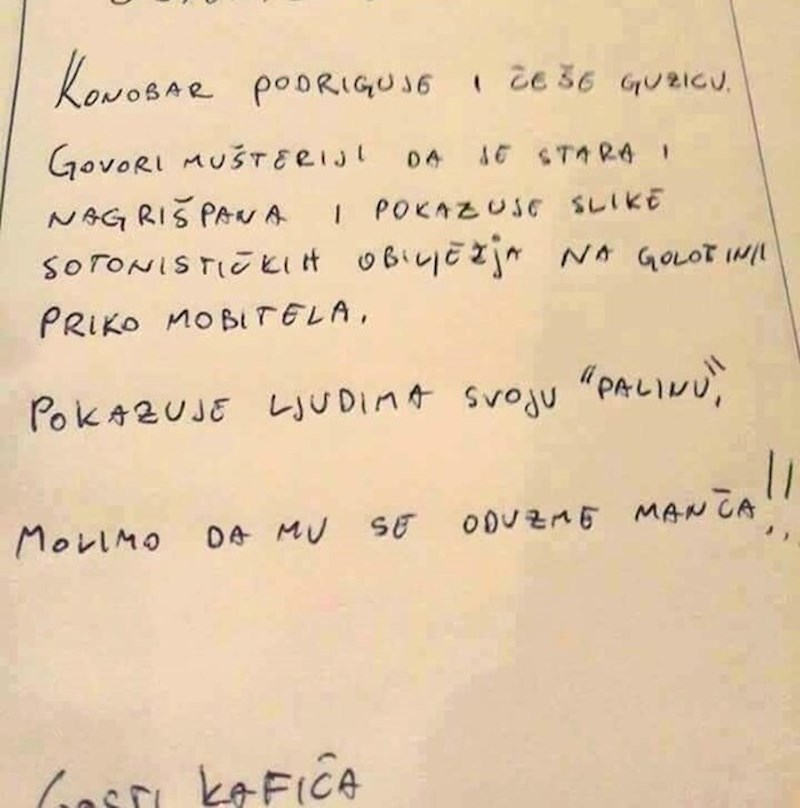 KONOBAR PODRIGUJE I ČEŠE GUZICU.
GOVORI MUŠTERIJI DA JE STARA I
NAGRIŠPANA I POKAZUJE SLIKE
SOTONISTIČKIH OBILJEŽJA NA GOLOTINJI
PRIKO MOBITELA.
POKAZUJE LJUDIMA SVOJU "PALINU".
MOLIMO DA MU SE ODUZME MANČA!!
GOSTI KAFIĆA